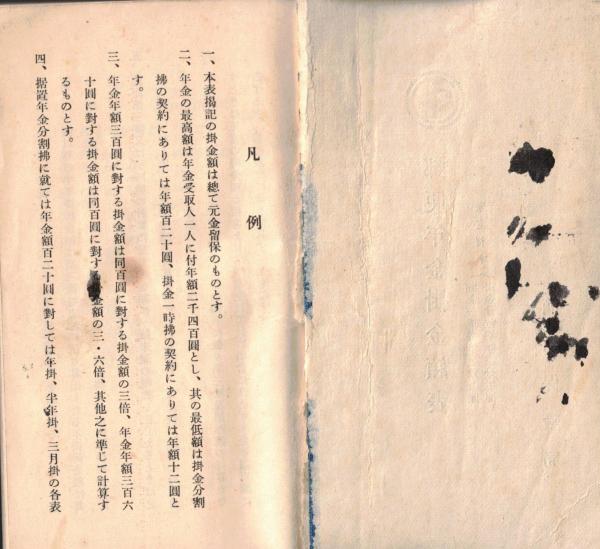 凡例
一、本表揭記の掛金額は總て元金留保のものとす。
二、年金の最高額は年金受取人一人に付年額二千四百圓とし、其の最低額は掛金分割
拂の契約にありては年額百二十圓、掛金一時拂の契約にありては年額十二圓と
す。
三、年金年額三百圓に對する掛金額は同百圓に對する掛金額の三倍、年金年額三百六
十圓に對する掛金額は同百圓に對する掛金額の三・六倍、其他之に準じて計算す
るものとす。
四、据置年金分割拂に就ては年金額百二十圓に對しては年掛、半年掛、三月掛の各表